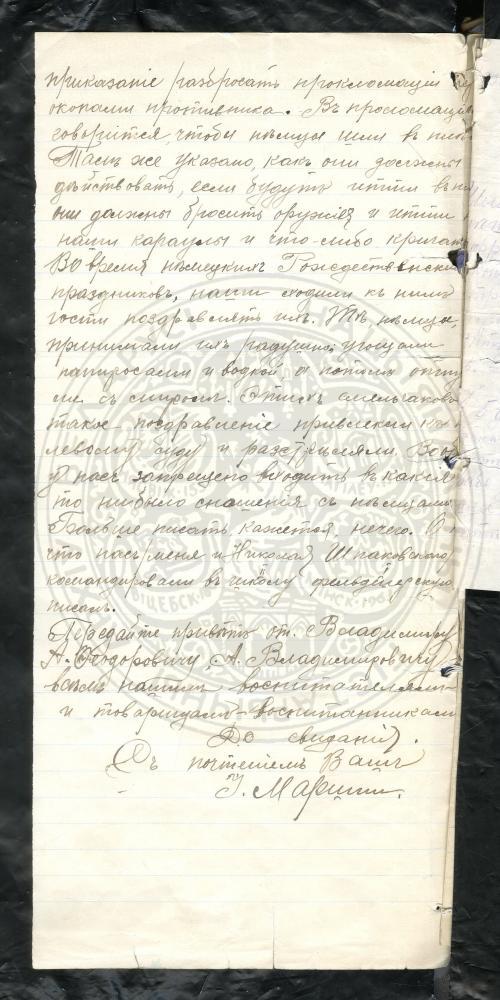 приказаніе разбросать прокломаціи
окопами противника. Въ прокломаціи
говорится, чтобы нѣмцы шли въ
Тамъ же указано, какъ они должны
дѣйствовать, если будутъ итти въ
они должны бросить оружіе и итти
наши караулы и что-либо
Во время нѣмецкихъ Рождественски
праздниковъ, наши ходили къ нимъ
гости поздравлять ихъ. Тѣ нѣмцы,
принимали ихъ радушно, угощали
папиросами и водкой, а потомъ
ли съ миромъ. Этихъ
такое поздравленіе привлекли къ
левому суду и разстрѣляли.
у насъ запрещено входить въ какія
то нибыло сношенія съ нѣмцами.
Больше писать, кажется, нечего. О
что насъ, меня и Николая Шпаковскаго,
командировали въ школу фельдшерскую
писалъ.
Передайте привѣтъ отъ Владимиру
А. Ѳеодоровичу, А. Владимировичу
всѣмъ нашимъ воспитателямъ
и товарищамъ-воспитанникамъ
До свиданія.
Съ почтеніемъ Вашъ